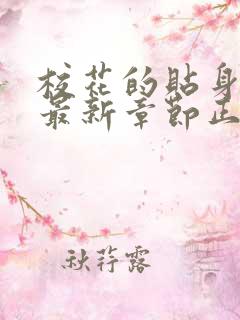 校花的贴身
最新章节正
秋荇露